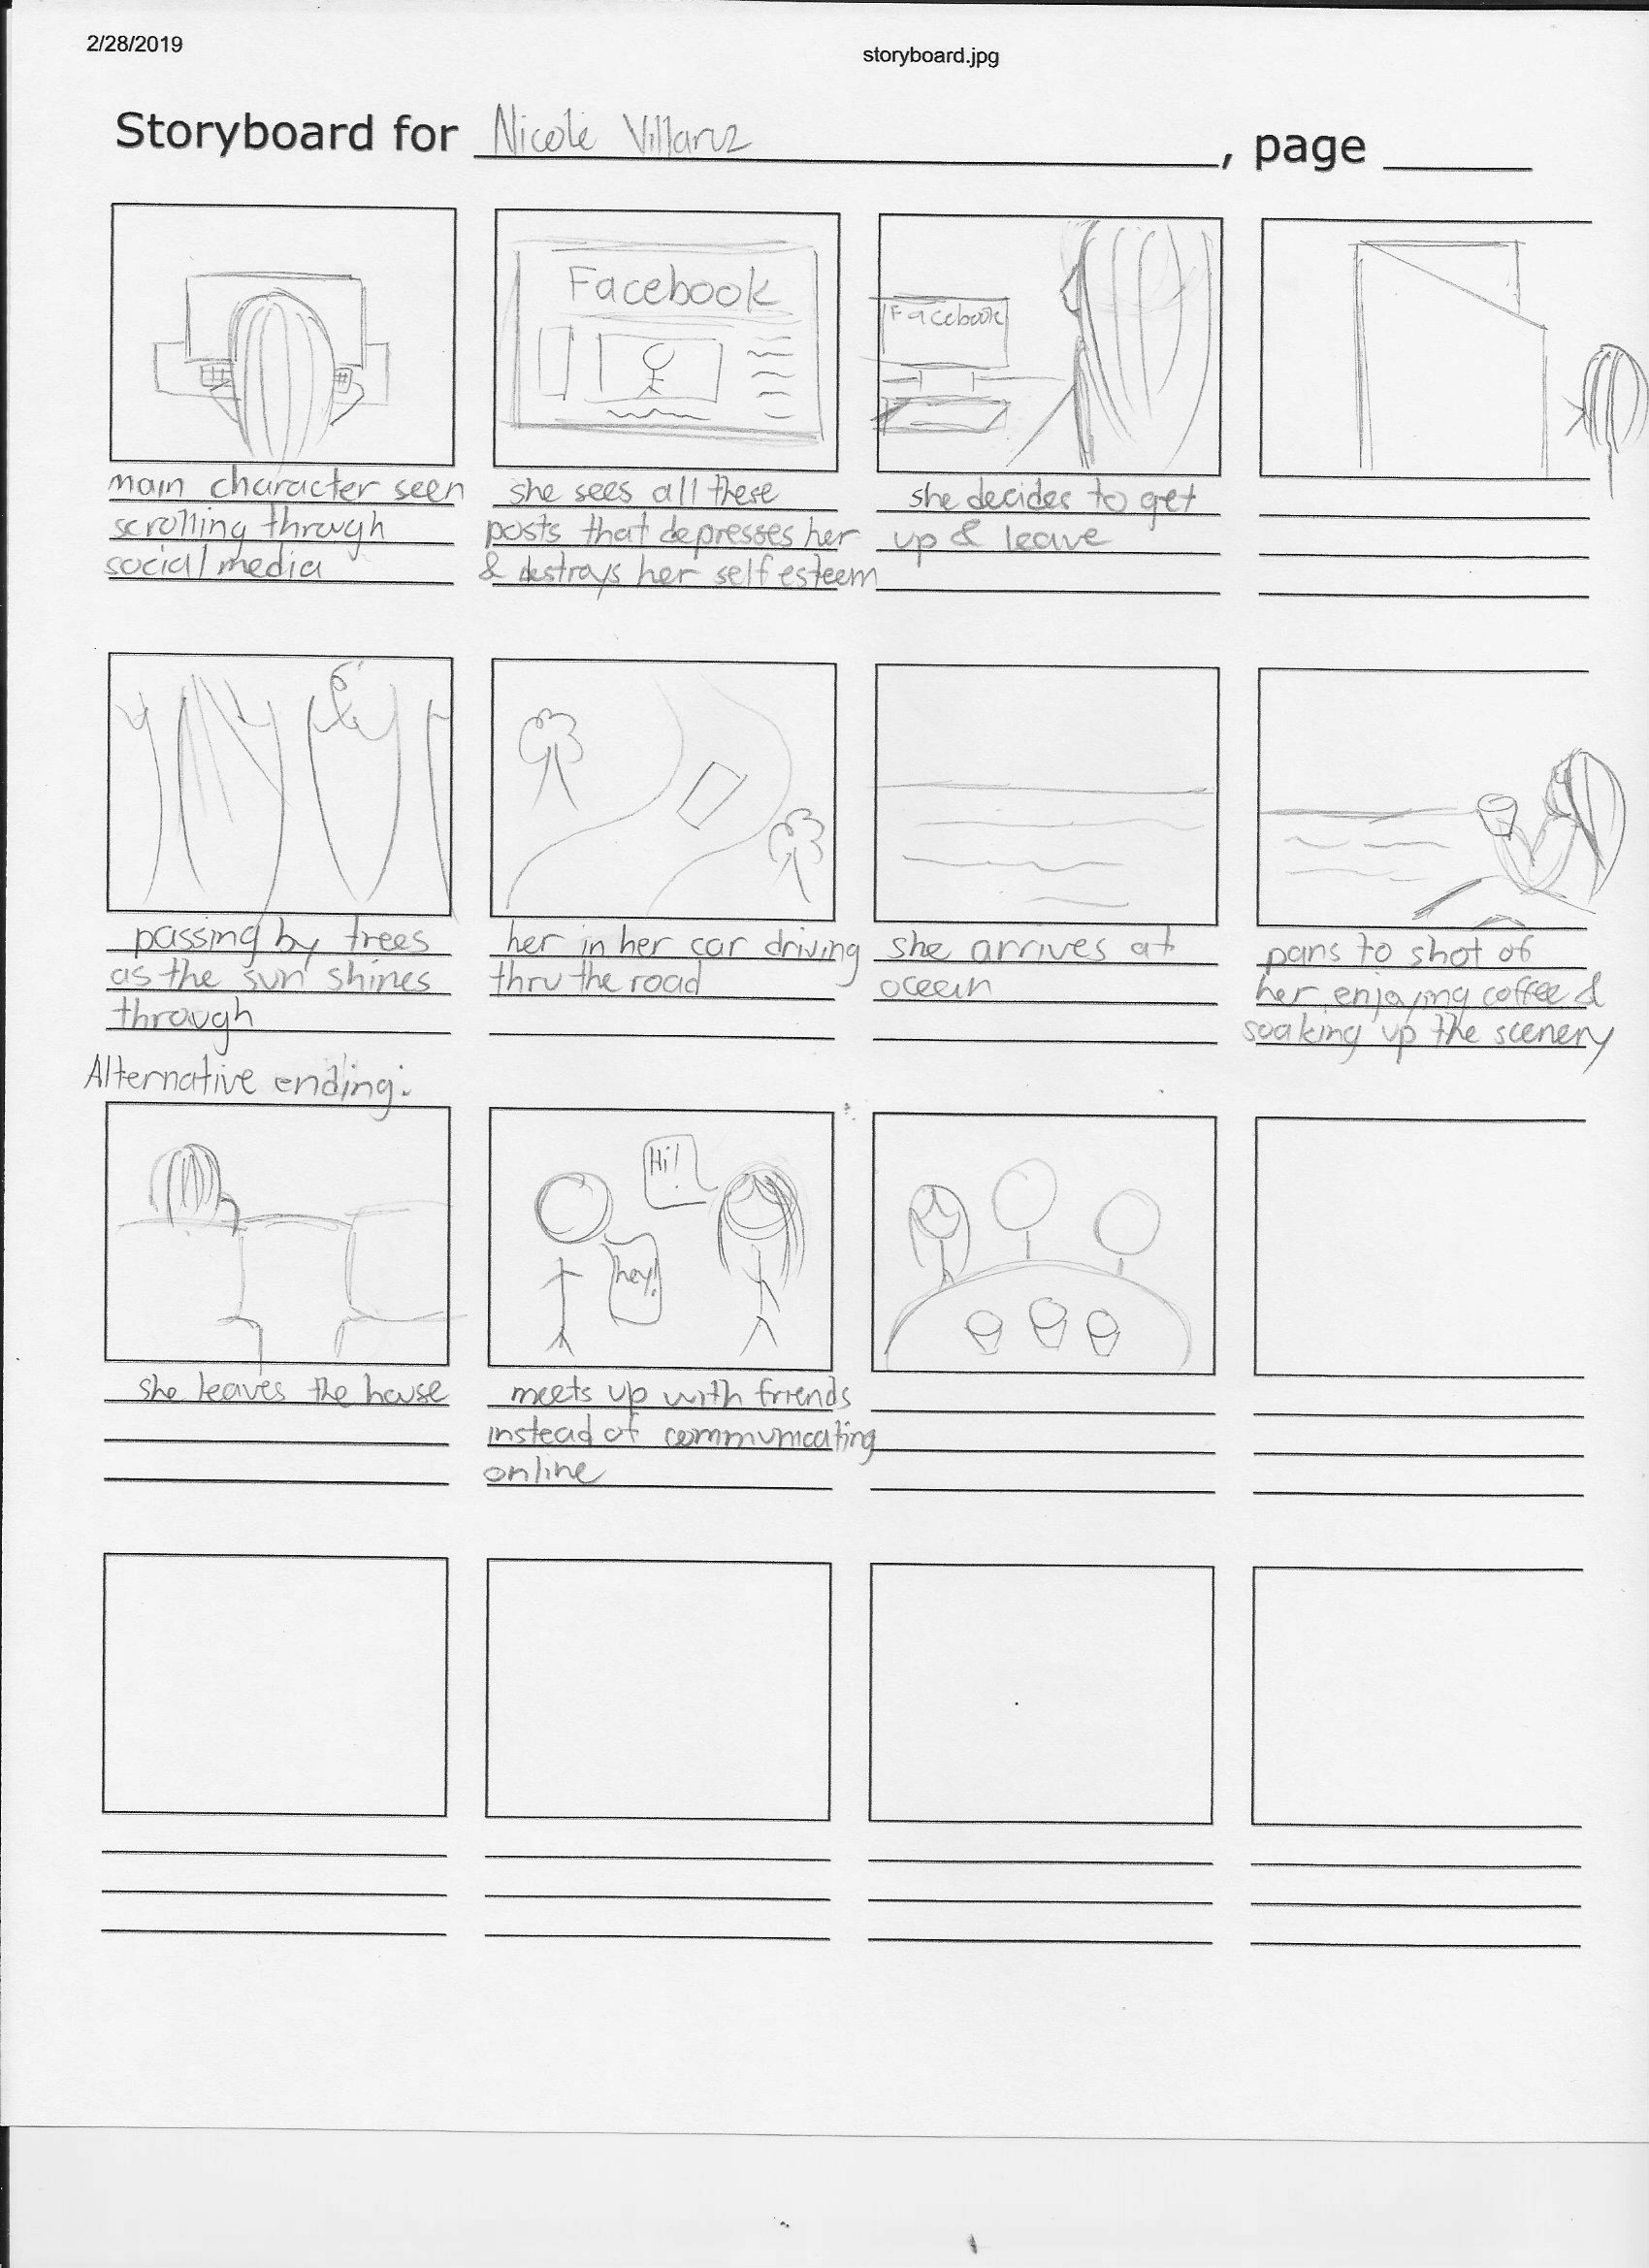 2/28/2019
storyboard.jpg
Storyboard for Nicole Villaruz, page
Facebook
Facebook
main character seen
scrolling through
social media
she sees all these
posts that depresses her
& destroys her self esteem
she decides to get
up & leave
passing by trees
as the sun shines
through
her in her car driving
thru the road
she arrives at
ocean
pans to shot of
her enjoying coffee &
soaking up the scenery
Alternative ending:
Hi!
hey!
she leaves the house
meets up with friends
instead of communicating
online